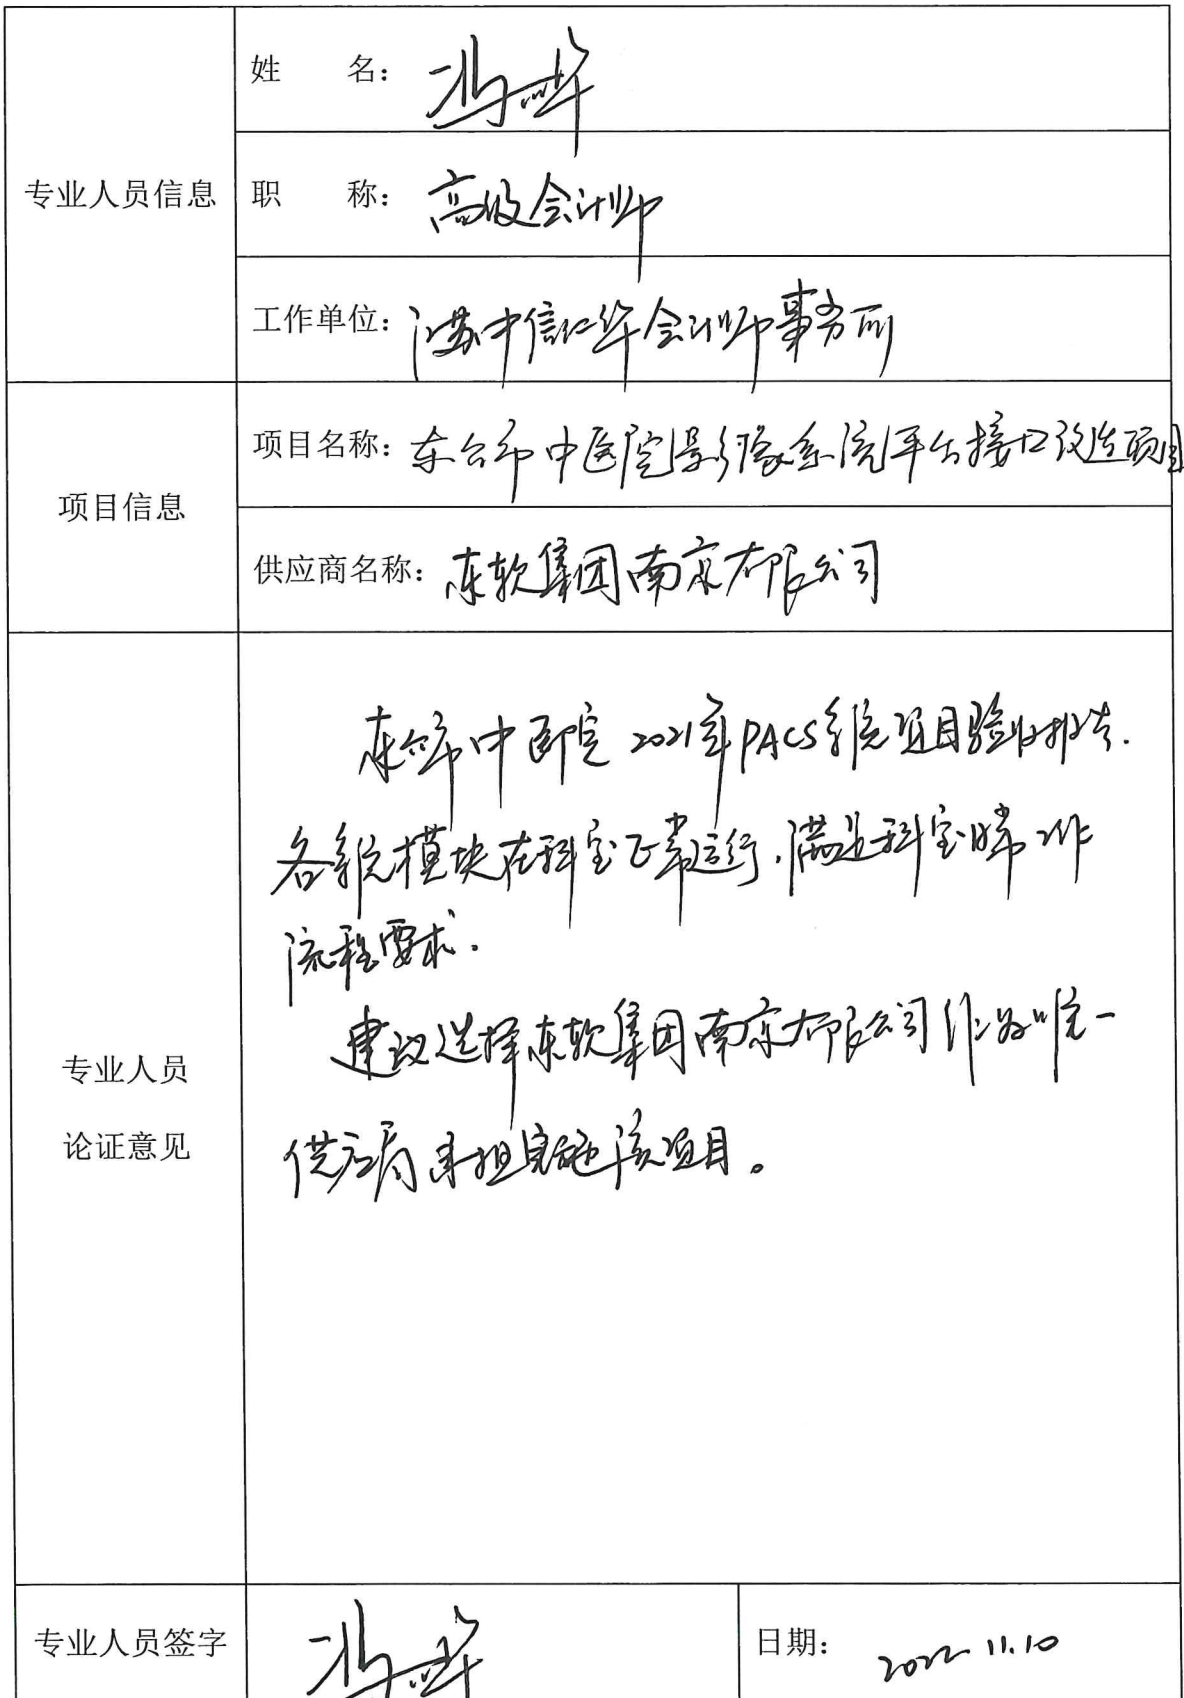 姓 名：冯晔
专业人员信息
职 称：高级会计师
工作单位：江苏中信仁华会计师事务所
项目信息
项目名称：东台市中医院影像系统平台接口改造项目
供应商名称：东软集团南京有限公司
东台市中医院2021年PACS系统项目验收报告.
各系统模块在科室正常运行,满足科室日常工作
流程要求.
建议选择东软集团南京有限公司作为唯一
供应商承担实施该项目。
专业人员
论证意见
专业人员签字 冯晔 日期：2022.11.10